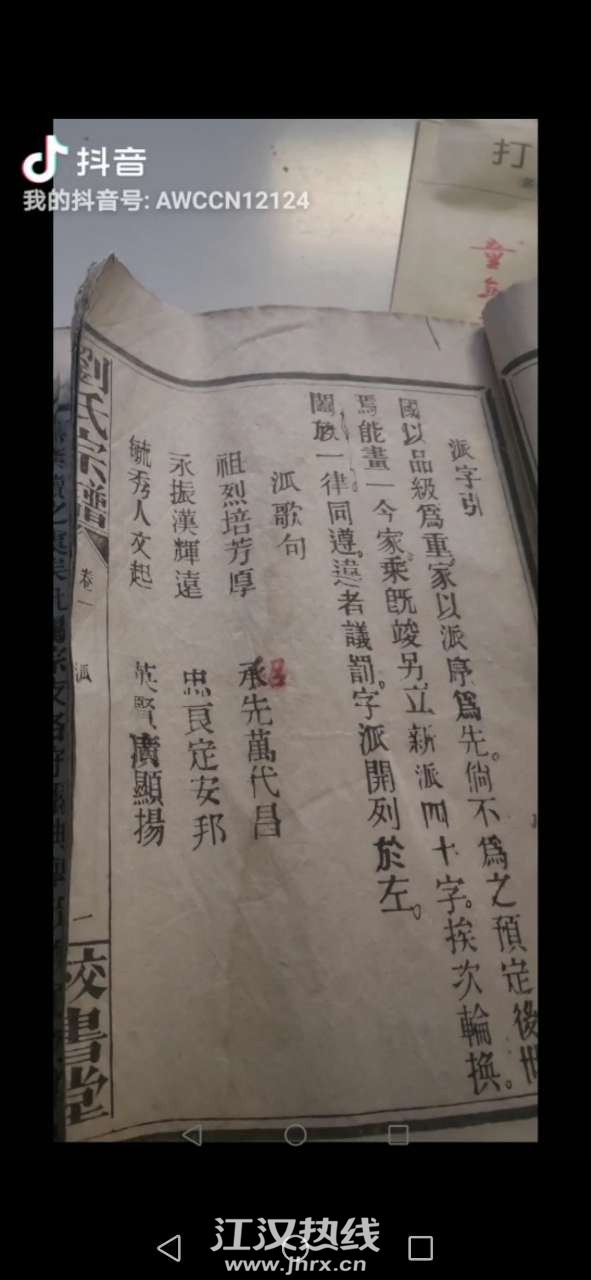 抖音
我的抖音号: AWCCN12124
打
派字引
國以品級爲重家以派序爲先。倘不爲之預定後世
焉能畫一今家乘既竣另立新派四十字。挨次輪換。
闔族一律同遵。違者議罰。字派開列於左。
派歌句
祖烈培芳厚 承先萬代昌
永振漢輝遠 忠良定安邦
毓秀人文起 英賢廣顯揚
劉氏宗譜
卷一
派
二
校書堂
江汉热线
www.jhrx.cn